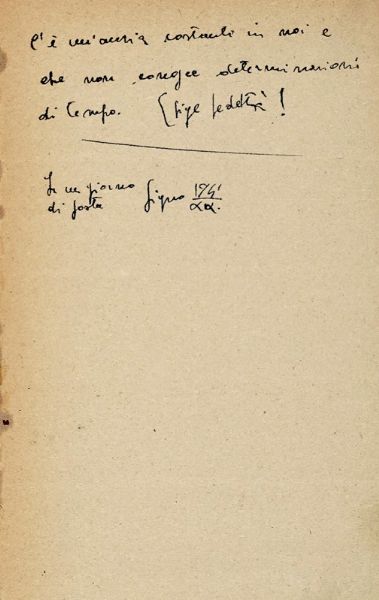 C'è un'ansia costante in noi e
che non conosce determinazioni
di tempo. Esige fedeltà!
In un giorno
di festa
Giugno 194